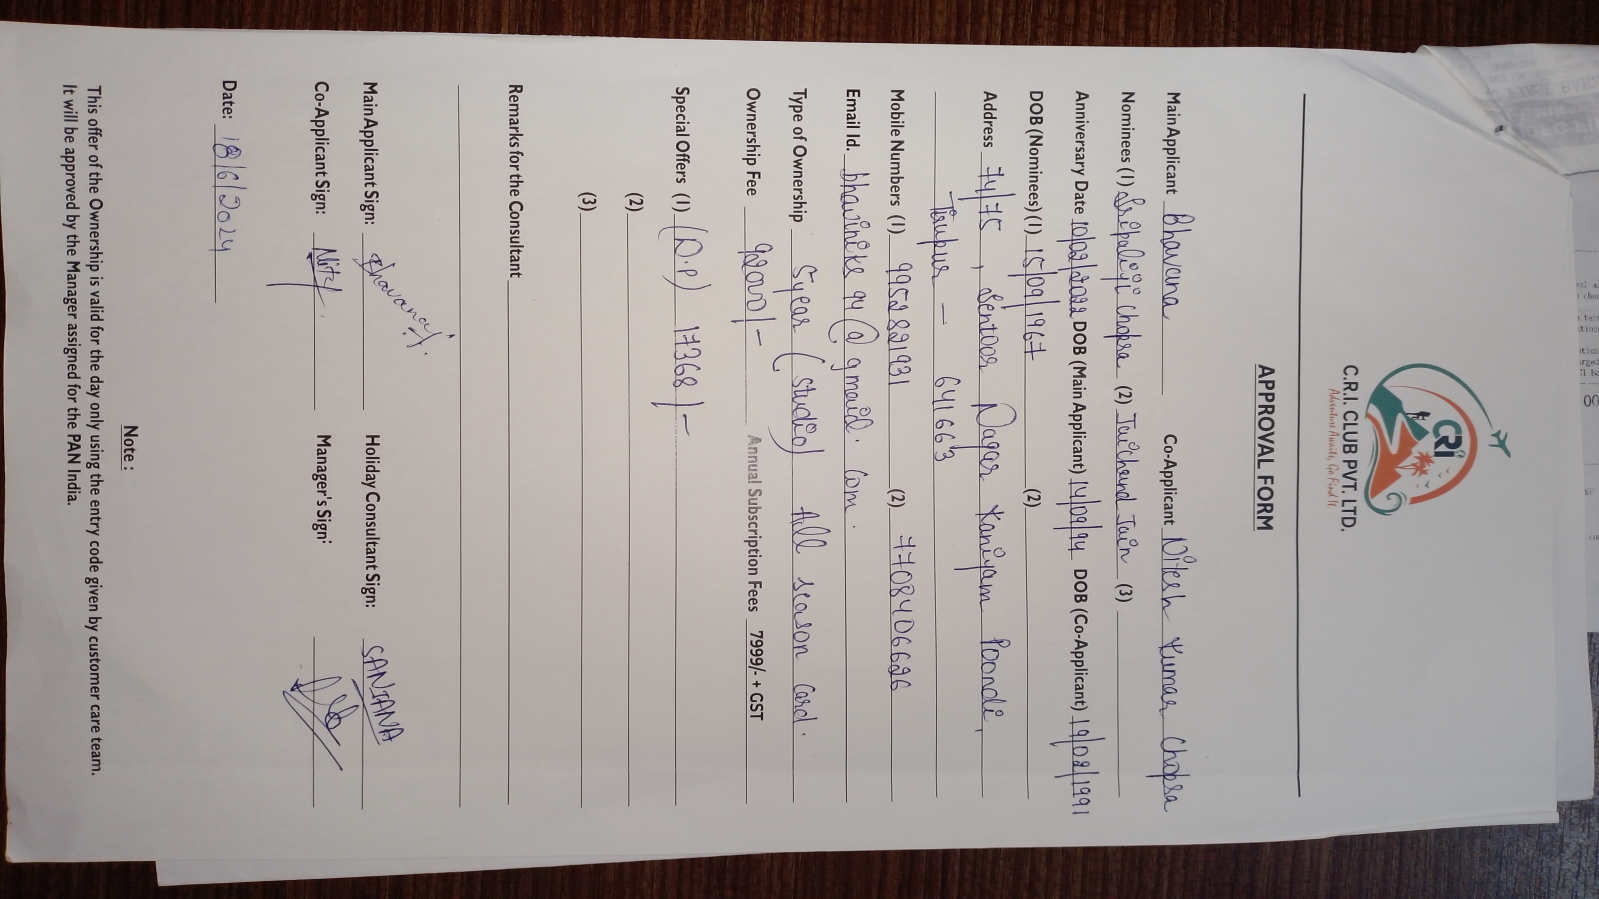 CRI
C.R.I. CLUB PVT. LTD.
Adventure Awaits, Go Find It.
APPROVAL FORM
Main Applicant Bhavana Co-Applicant Nitesh Kumar Chopra
Nominees (1) Sripaljji Chopra (2) Jaichand Jain (3)
Anniversary Date 10/02/2022 DOB (Main Applicant) 14/09/94 DOB (Co-Applicant) 19/02/1991
DOB (Nominees) (1) 15/09/1967 (2)
Address 74/75, Sentoor Nagar Kaniyam Poondi,
Tirupur - 641663
Mobile Numbers (1) 9952821931 (2) 7708406626
Email Id. bhavinike94@gmail.com.
Type of Ownership 5year (studio) All season Card.
Ownership Fee 92000/- Annual Subscription Fees 7999/- + GST
Special Offers (1) (D.P) 17368/-
(2)
(3)
Remarks for the Consultant
Main Applicant Sign: Bhavana Holiday Consultant Sign: SANJANA
Co-Applicant Sign: Manager's Sign:
Date: 18/6/2024
Note :
This offer of the Ownership is valid for the day only using the entry code given by customer care team.
It will be approved by the Manager assigned for the PAN India.